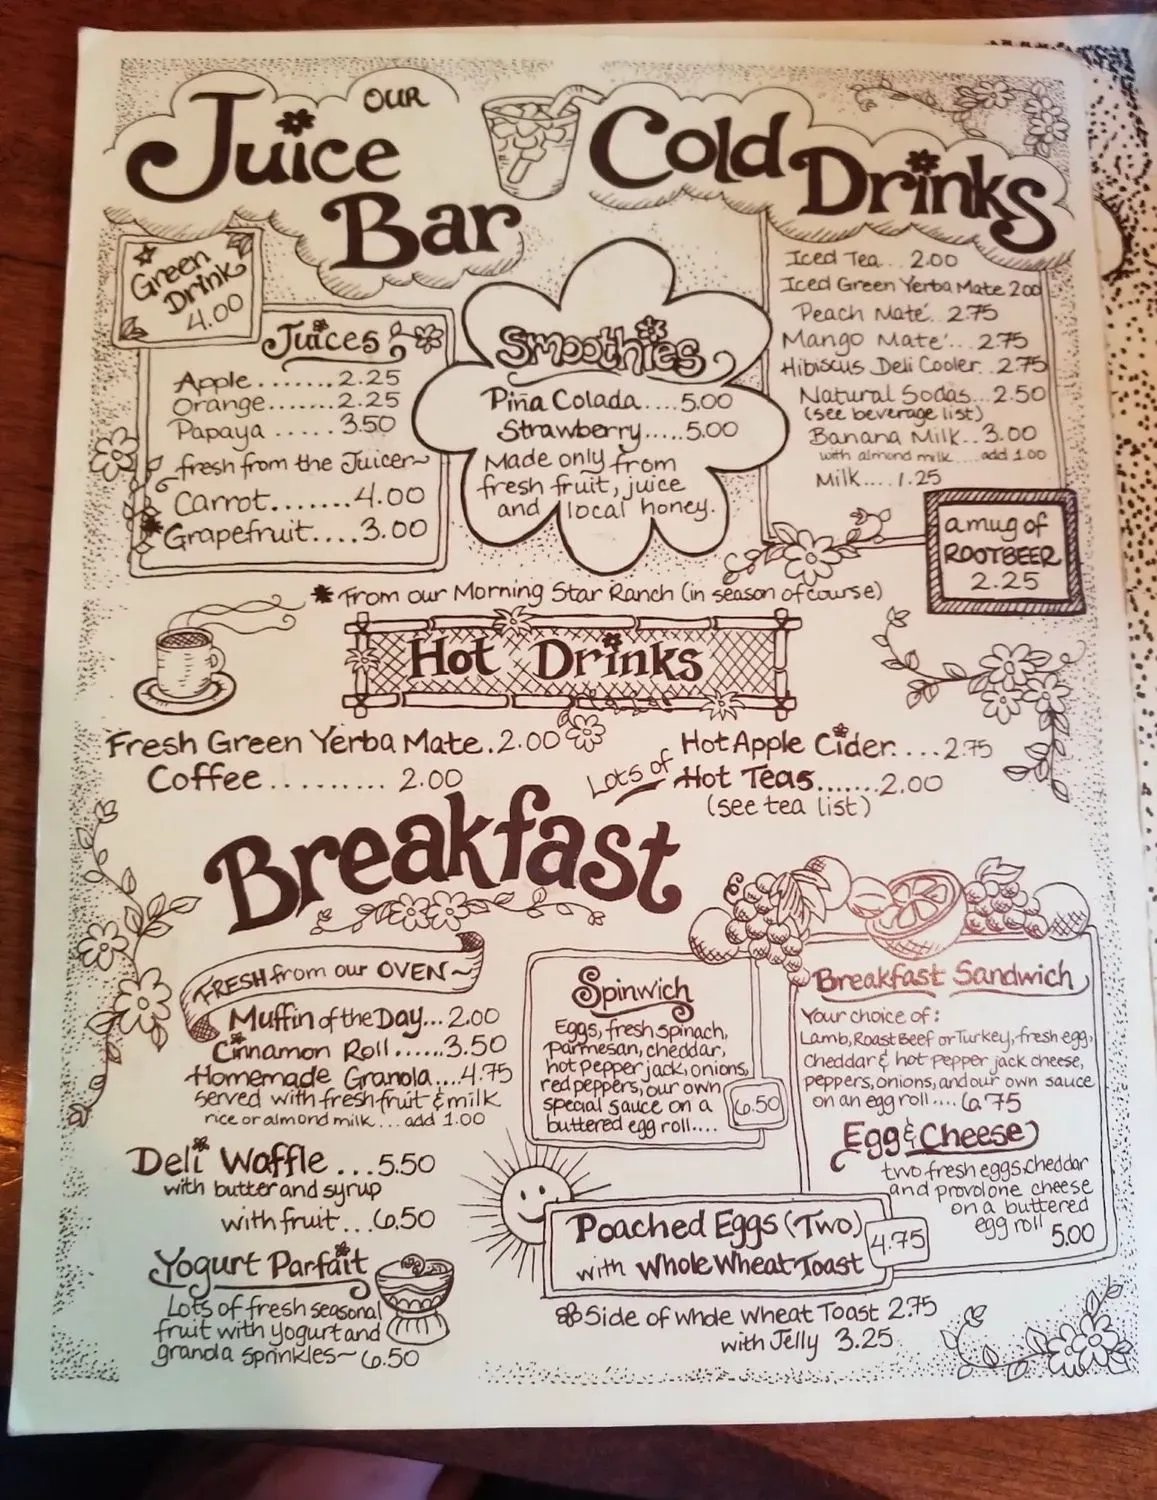 OUR
Juice
Bar
Green
Drink
4.00
Juices
Apple.......2.25
Orange.......2.25
Papaya .....3.50
fresh from the Juicer~
Carrot.......4.00
*Grapefruit....3.00
Smoothies
Piña Colada....5.00
Strawberry.....5.00
Made only from
fresh fruit, juice
and local honey.
Cold
Drinks
Iced Tea...2.00
Iced Green Yerba Mate 2.00
Peach Maté..2.75
Mango Maté...2.75
Hibiscus Deli Cooler..2.75
Natural Sodas...2.50
(see beverage list)
Banana Milk..3.00
with almond milk....add 1.00
Milk....1.25
a mug of
ROOTBEER
2.25
* From our Morning Star Ranch (in season of course)
Hot Drinks
Fresh Green Yerba Mate.2.00
Coffee.......... 2.00
Hot Apple Cider....2.75
Lots of Hot Teas.......2.00
(see tea list)
Breakfast
FRESH from our OVEN~
Muffin of the Day...2.00
Cinnamon Roll......3.50
Homemade Granola....4.75
served with fresh fruit & milk
rice or almond milk...add 1.00
Deli Waffle ...5.50
with butter and syrup
with fruit...6.50
Yogurt Parfait
Lots of fresh seasonal
fruit with yogurt and
granola sprinkles~6.50
Spinwich
Eggs, fresh spinach,
parmesan, cheddar,
hot pepper jack, onions,
red peppers, our own
special sauce on a
buttered egg roll....
6.50
Breakfast Sandwich
Your choice of:
Lamb, Roast Beef or Turkey, fresh egg,
cheddar & hot pepper jack cheese,
peppers, onions, and our own sauce
on an egg roll.... 6.75
Egg & Cheese
two fresh eggs, cheddar
and provolone cheese
on a buttered
egg roll
5.00
Poached Eggs (Two)
with Whole Wheat Toast
4.75
Side of Whole Wheat Toast 2.75
with Jelly 3.25